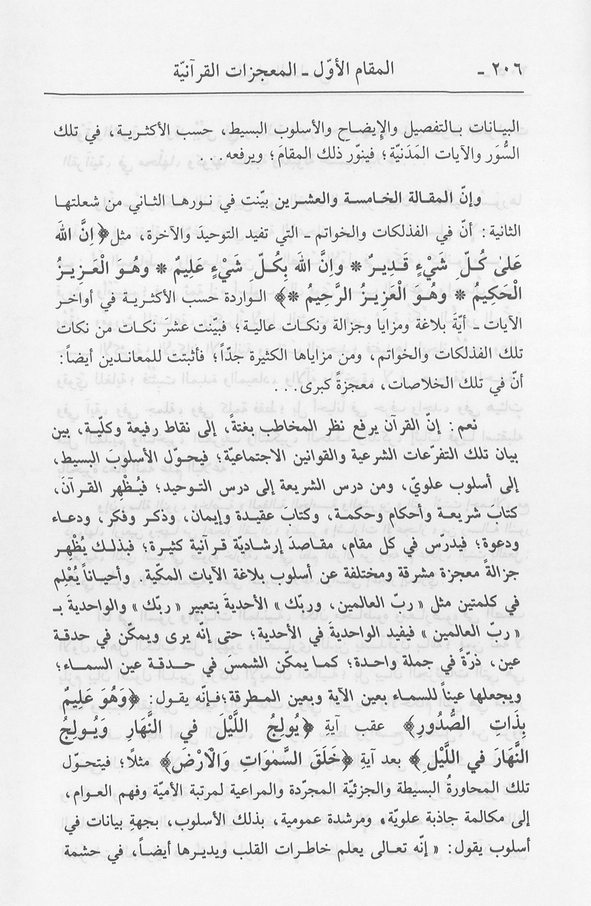 ٢٠٦ - المقام الأوّل - المعجزات القرآنيّة
البيانات بـالتفصيل والإيضـاح والأسلوب البسيط، حسب الأكثـريـة، في تلك
السُّوَر والآيات المَدَنيّة؛ فينوّر ذلك المقامَ؛ ويرفعه...
وإنّ المقـالة الخـامسـة والعشـرين بيّنت في نـورها الثـاني من شعلتهـا
الثانية: أنّ في الفذلكات والخواتم - التي تفيد التوحيدَ والآخرة، مثل ﴿ إنَّ اللهَ
عَلىٰ كُـلِّ شَيْءٍ قَـدِيـرٌ * وإنَّ الله بِكُـلِّ شَيْءٍ عَلِيمٌ * وهُـوَ الْعَـزِيـزُ
الْحَكِيمُ * وهُـوَ الْعَزِيـزُ الرَّحِيمُ *﴾ الـواردة حسب الأكثـريـة في أواخـر
الآيات - أيّةَ بلاغة ومزايا وجزالة ونكات عالية؛ فبيّنت عشرَ نكـات من نكات
تلك الفذلكات والخواتم، ومن مزاياها الكثيرة جدّاً؛ فأثبتت للمعـاندين أيضاً:
أنّ في تلك الخلاصات، معجزةً كبرى...
نعم: إنّ القرآن يرفع نظر المخاطب بغتةً، إلى نقاط رفيعة وكلّيـة، بين
بيان تلك التفرّعات الشرعية والقوانين الاجتماعيّة؛ فيحـوّل الأسلوبَ البسيط،
إلى أسلوب علويّ، ومن درس الشريعة إلى درس التـوحيد؛ فيُظْهِر القـرآنَ،
كتابَ شريعـة وأحكام وحكمـة، وكتابَ عقيـدة وإيمان، وذكـر وفكر، ودعـاء
ودعوة؛ فيدرّس في كل مقام، مقـاصدَ إرشـاديّة قـرآنية كثيـرة؛ فبذلـك يُظْهِـر
جزالةً معجزة مشرقة ومختلفة عن أسلوب بلاغة الآيات المكّية. وأحيـاناً يُعْلِم
في كلمتين مثل «ربّ العالمين، وربّك» الأحديةَ بتعبير «ربّك» والواحديةَ بـ
«ربّ العالمين» فيفيد الواحديةَ في الأحدية؛ حتى إنّه يرى ويمكّن في حدقـة
عين، ذرّةً في جملة واحـدة؛ كمـا يمكّن الشمسَ في حـدقـة عين السمـاء؛
ويجعلها عيناً للسماء بعين الآية وبعين المـطرقة؛ فـإنّه يقـول: ﴿وَهُوَ عَلِيمٌ
بِذَاتِ الصُّدُورِ﴾ عقب آيةِ ﴿يُولِجُ اللَّيْلَ فِي النَّهَارِ وَيُـولِجُ
النَّهَارَ فِي اللَّيْلِ﴾ بعد آيةِ ﴿خَلَقَ السَّمٰوَاتِ وَالْاَرْضَ﴾ مثلًا؛ فيتحـوّل
تلك المحاورةُ البسيطة والجزئيّة المجرّدة والمراعية لمرتبة الأميّة وفهم العوام،
إلى مكالمة جاذبة علويّة، ومرشدة عمومية، بذلك الأسلوب، بجهةِ بيانات في
أسلوب يقول: «إنّه تعـالى يعلم خاطـرات القلب ويديـرها أيضـاً، في حشمة